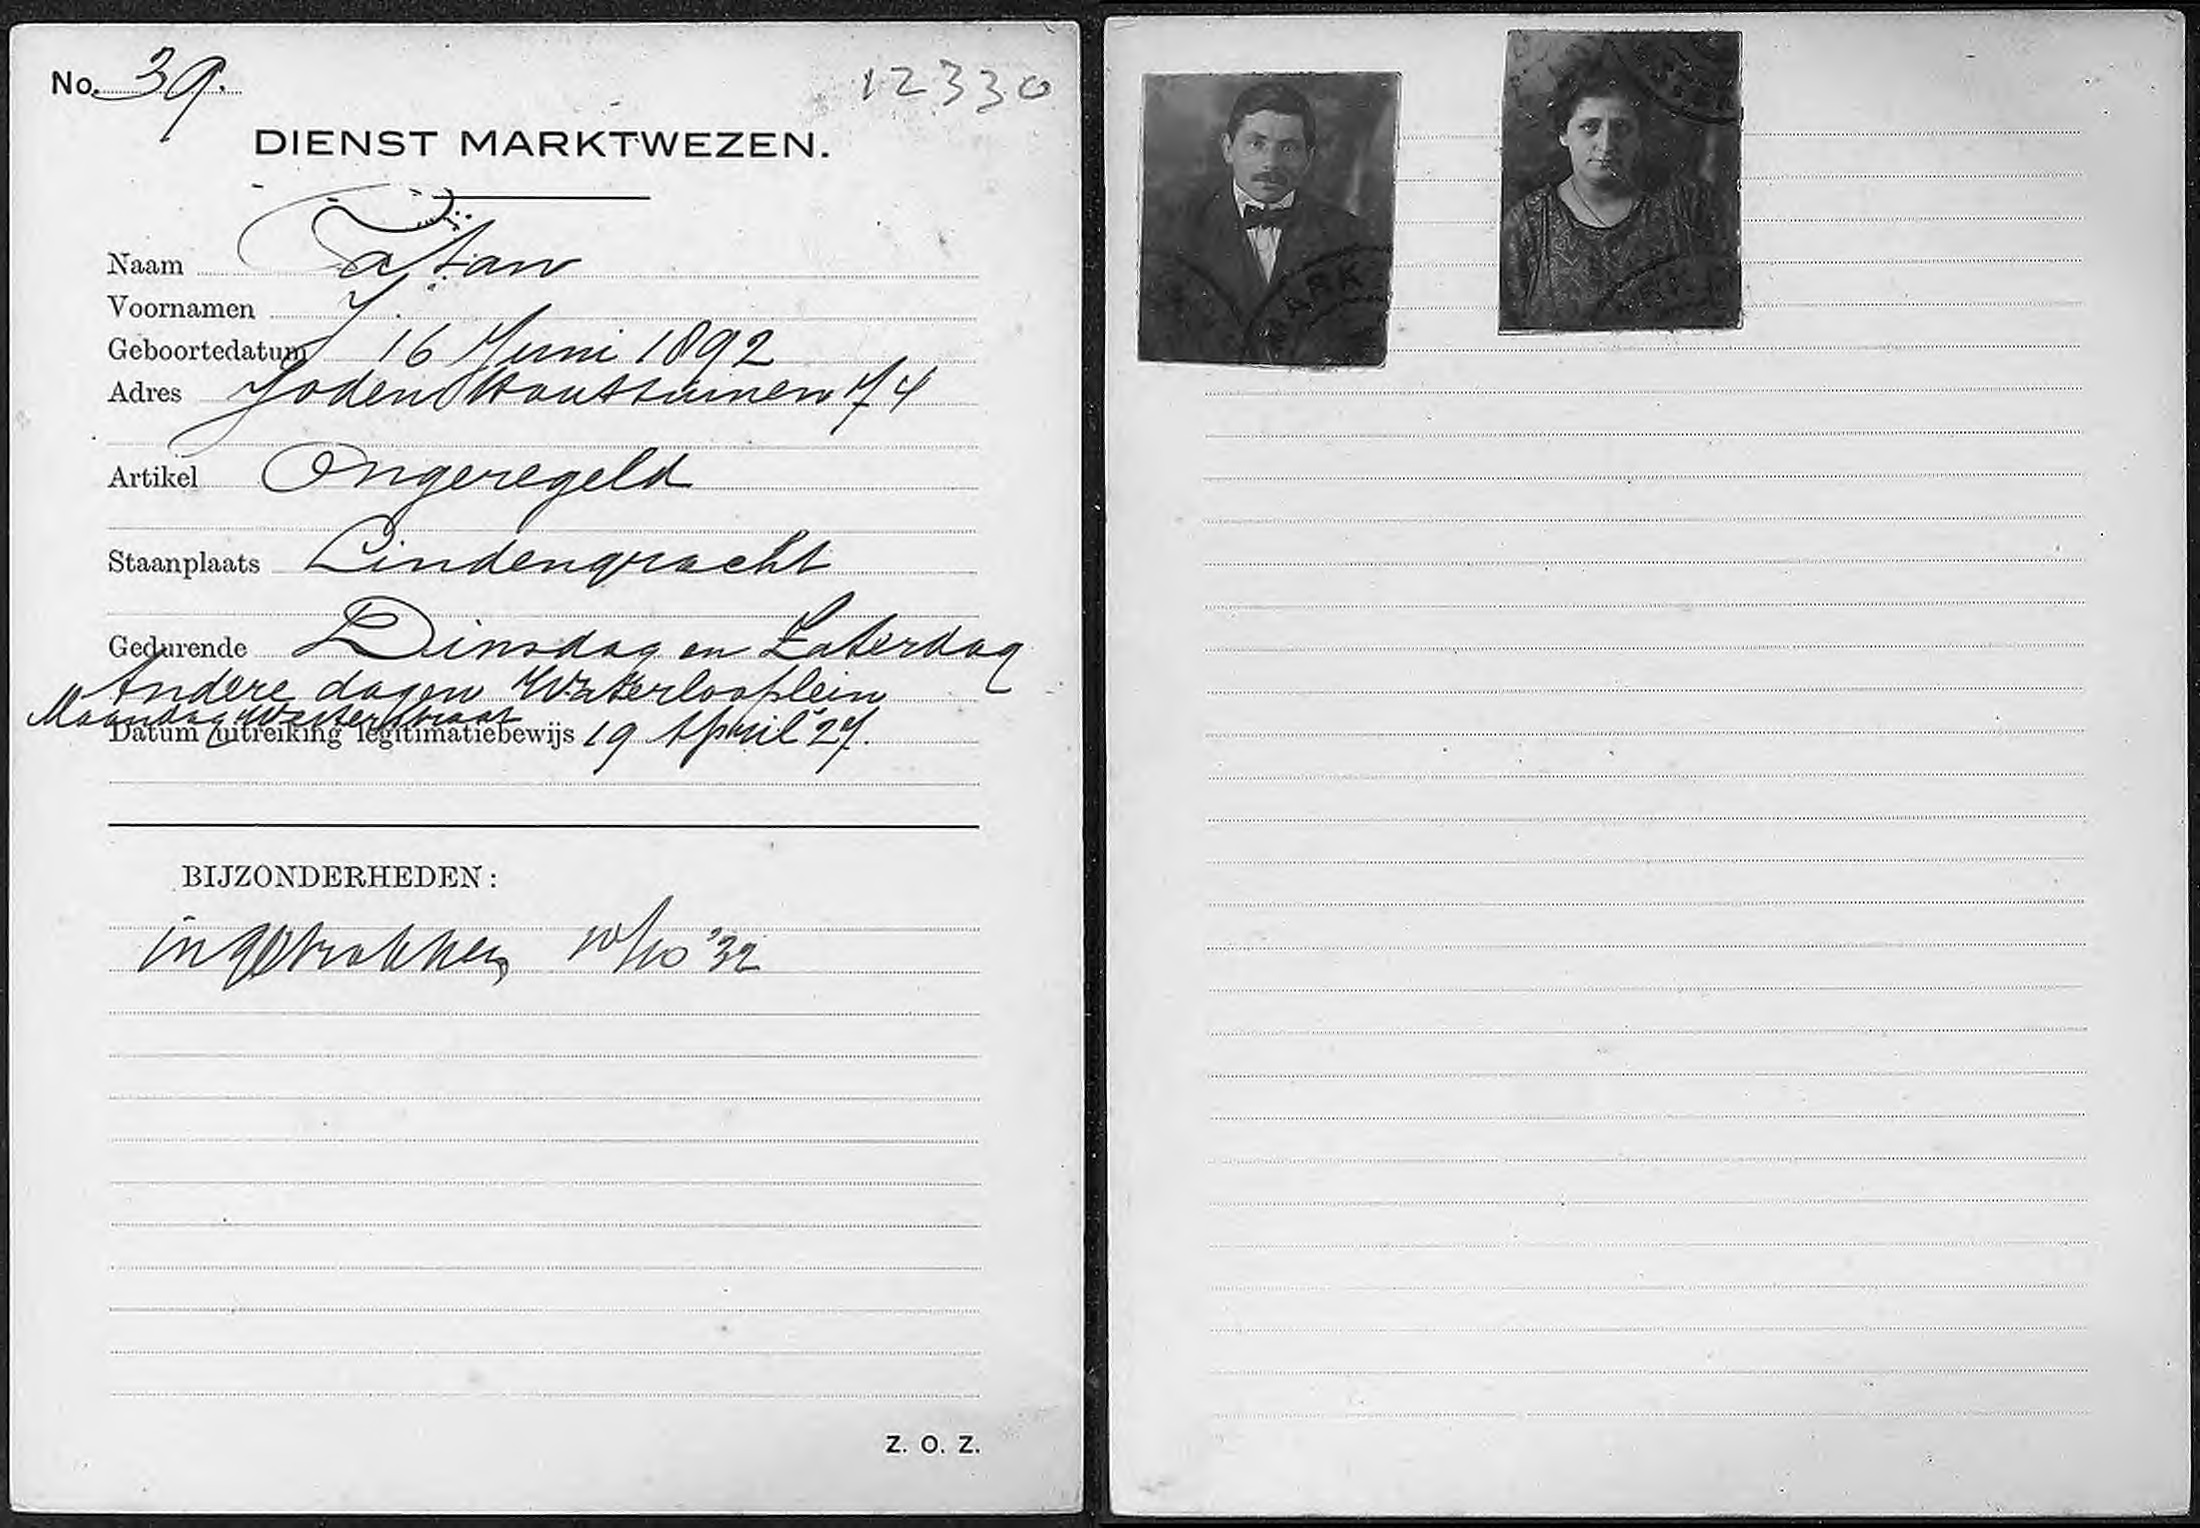 No. 39.
12330
DIENST MARKTWEZEN.
Naam
Voornamen
Geboortedatum 16 Juni 1892
Adres Joden Houttuinen 74
Artikel Ongeregeld
Staanplaats Lindengracht
Gedurende Dinsdag en Zaterdag
Andere dagen Waterlooplein
Maandag Westerstraat
Datum uitreiking legitimatiebewijs 19 April '27.
BIJZONDERHEDEN:
ingetrokken 10/10 '32
Z. O. Z.
MARK